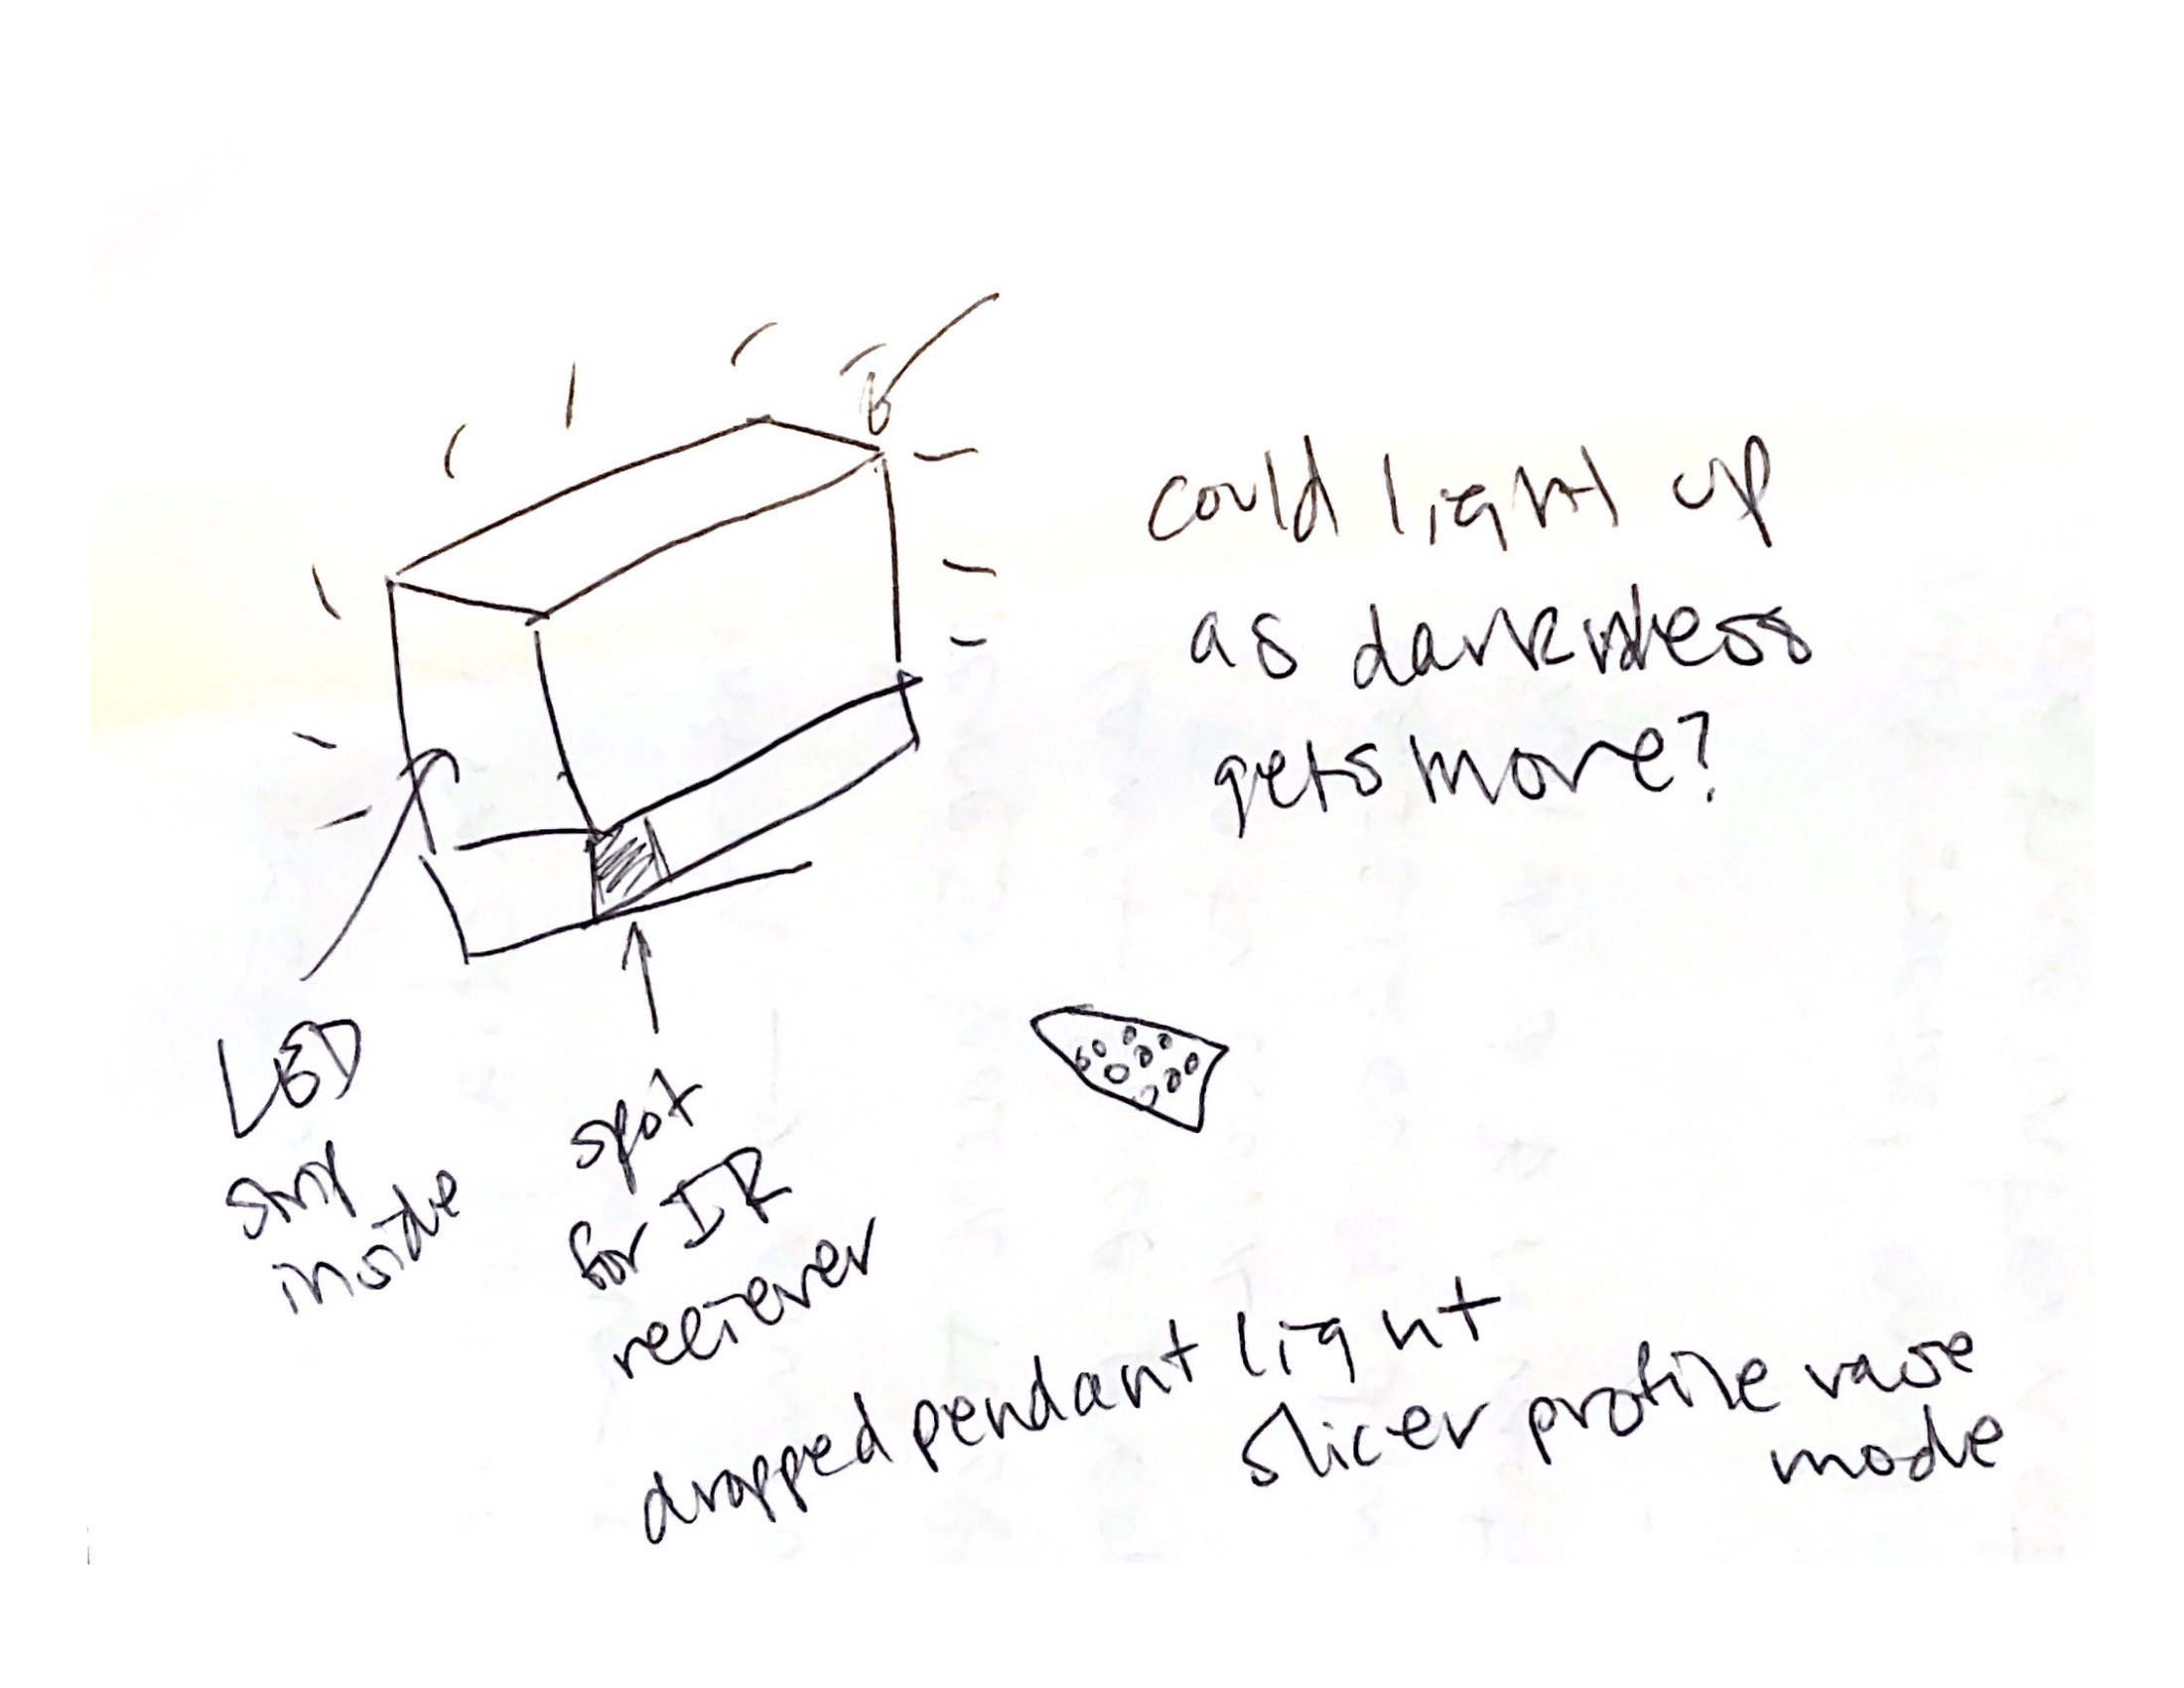 could light up
as darkness
gets more?
LED
strip
inside
spot
for IR
reciever
dropped pendant light
slicer profile vase
mode